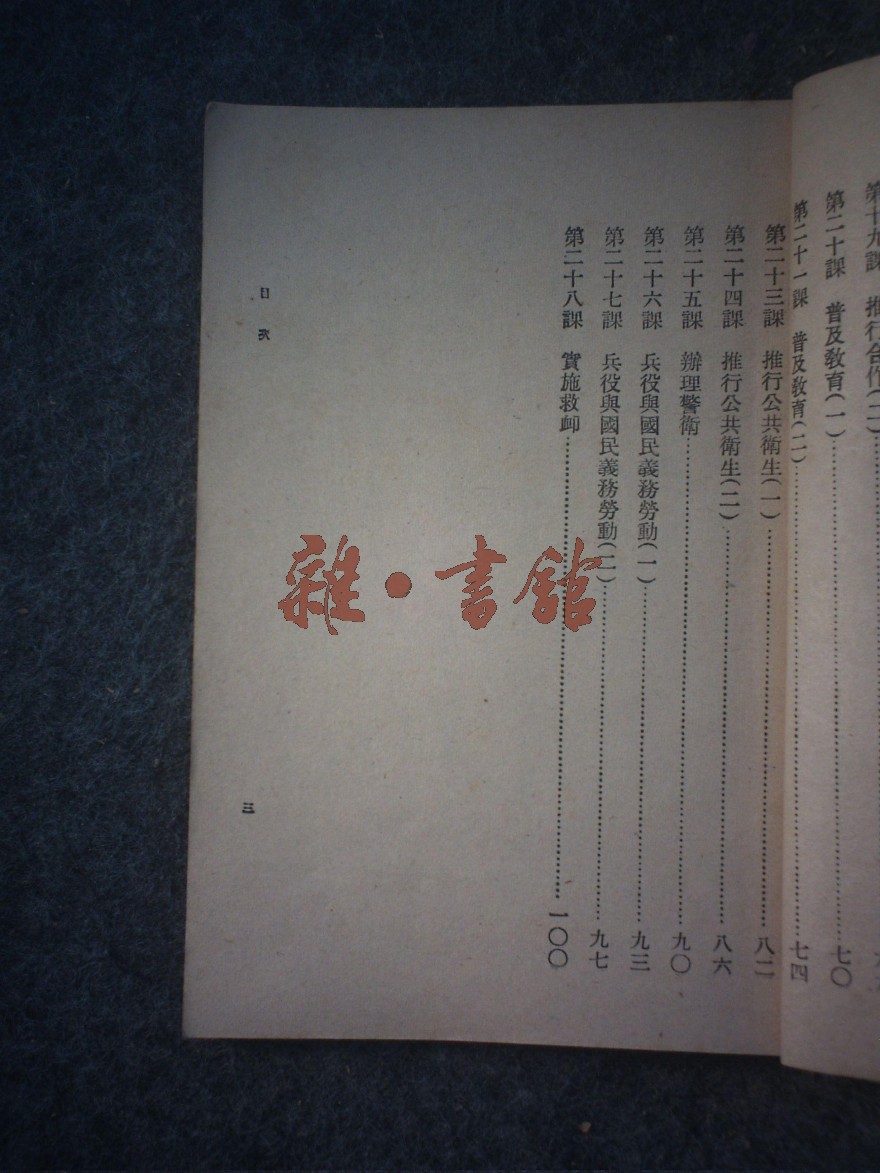 第十九課　推行合作(二)
第二十課　普及教育(一)……七〇
第二十一課　普及教育(二)……七四
第二十三課　推行公共衛生(一)……八二
第二十四課　推行公共衛生(二)……八六
第二十五課　辦理警衛……九〇
第二十六課　兵役與國民義務勞動(一)……九三
第二十七課　兵役與國民義務勞動(二)……九七
第二十八課　實施救卹……一〇〇
目次
三
雜·書館